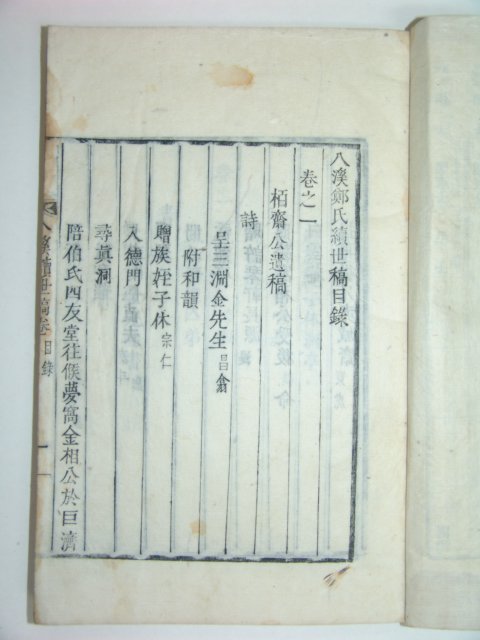 八溪鄭氏續世稿目錄
卷之一
栢齋公遺稿
詩
呈三淵金先生 昌翕
附和韻
贈族姪子休 宗仁
入德門
尋眞洞
陪伯氏四友堂往候夢窩金相公於巨濟
八溪續世稿卷 目錄 一